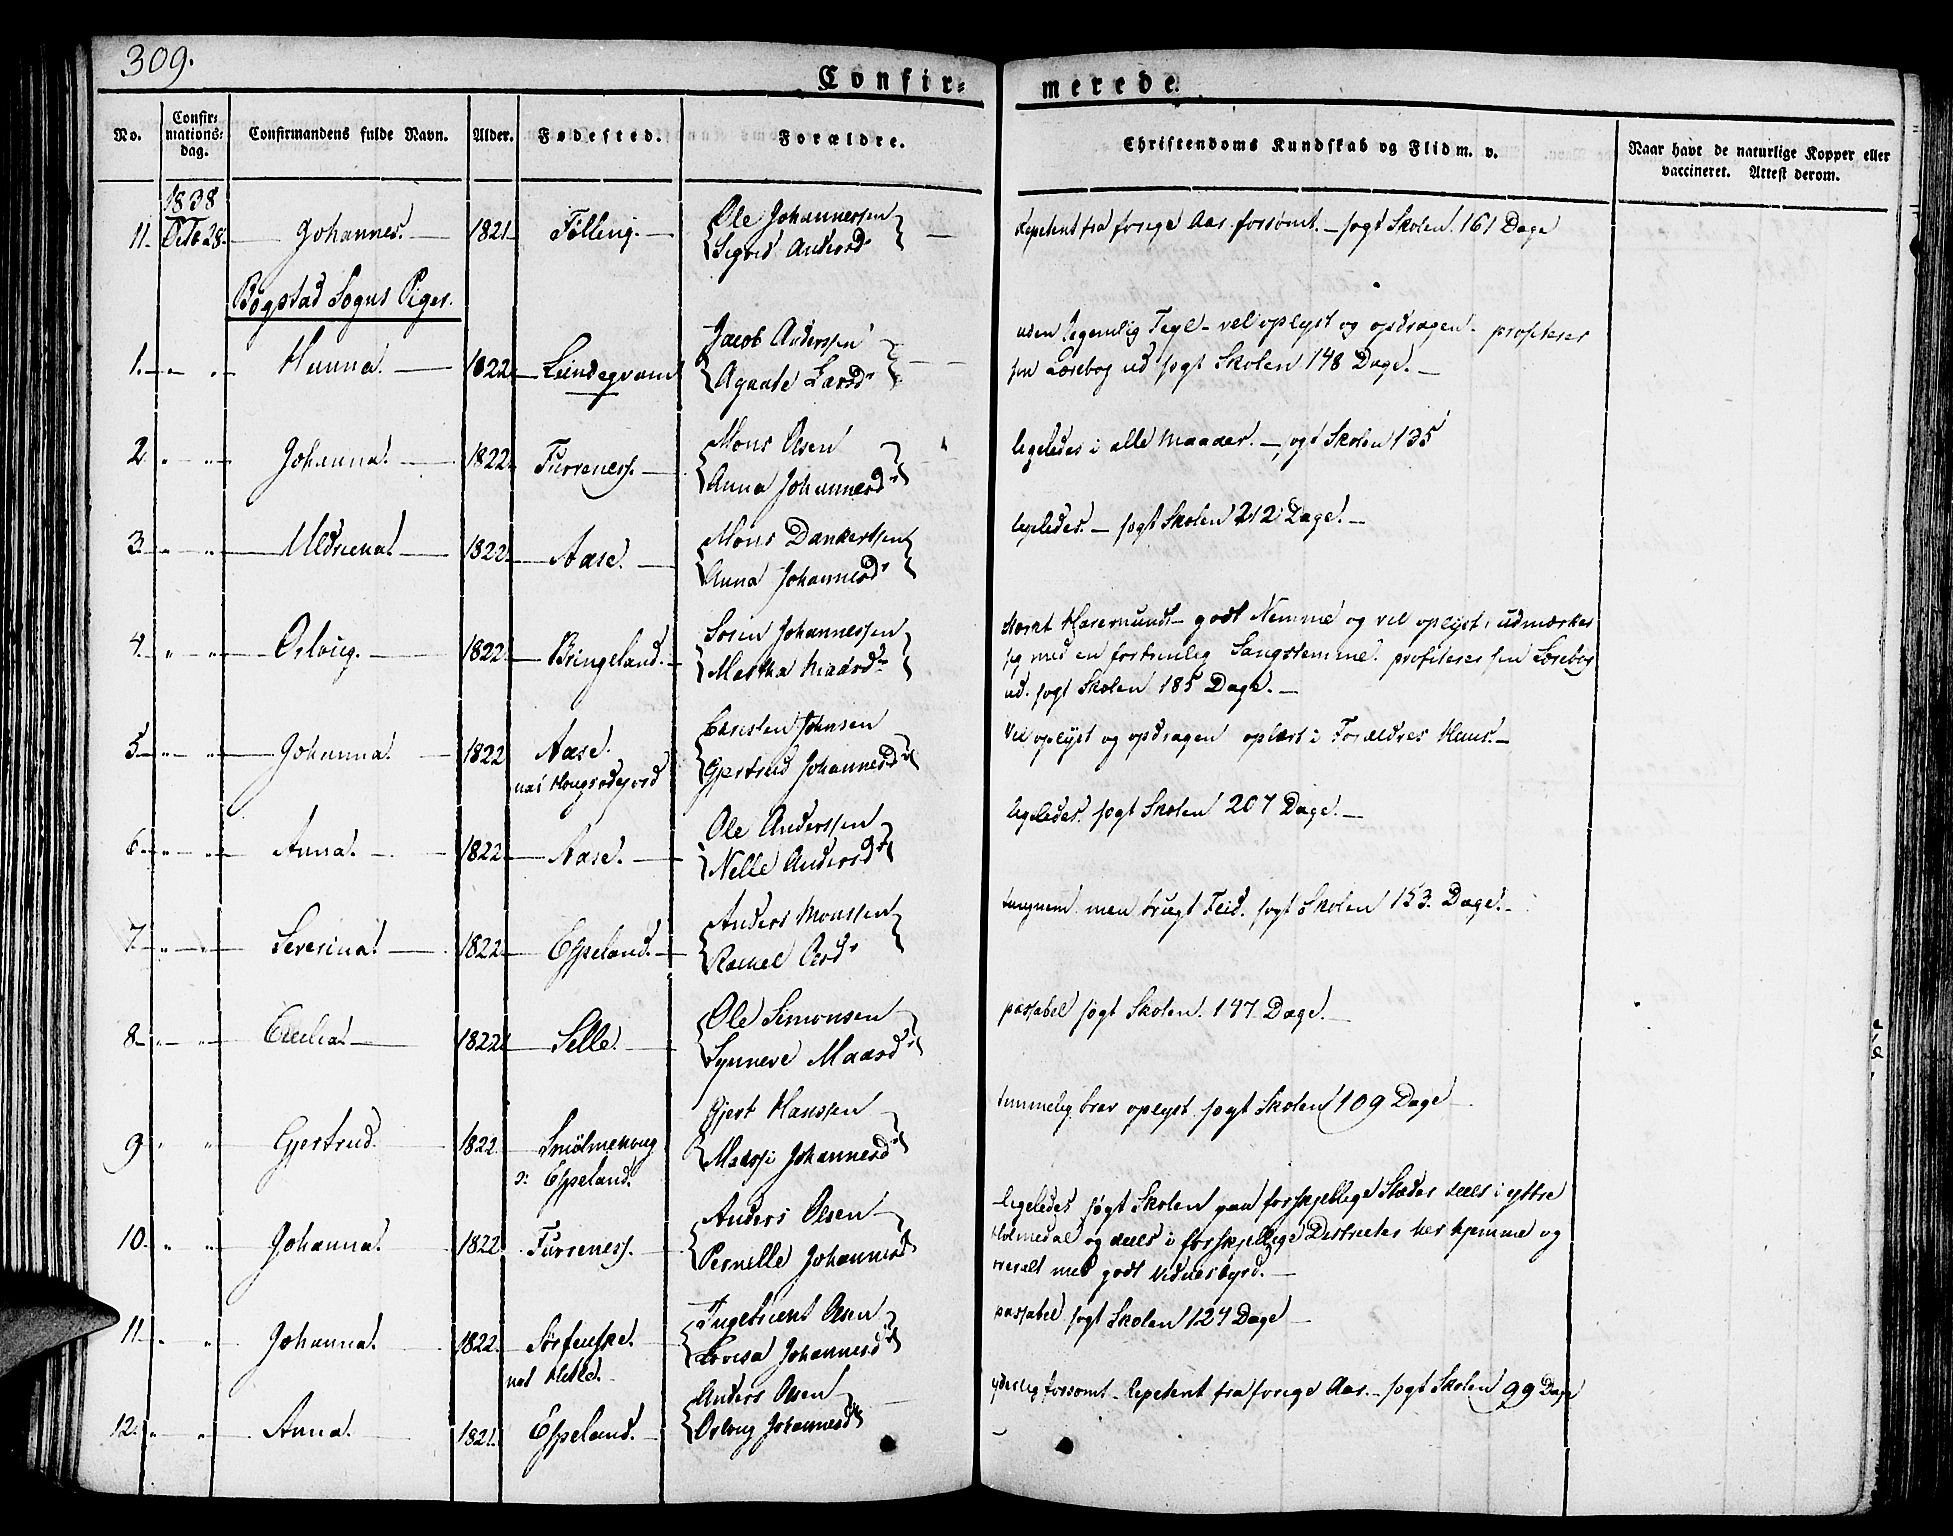 309.
Confir=
merede.
No.
Confir=
mations=
dag.
Confirmandens fulde Navn.
Alder.
Fødested.
Forældre.
Christendoms Kundskab og Flid m. v.
Naar havt de naturlige Kopper eller
vaccineret. Attest derom.
1838
11. Octb 28. Johannes. 1821 Tølling. Ole Johannessen
Sigrid Andersd
Repetent fra forige Aar. forsømt. - søgt Skolen. 161 Dage
Bøgstad Sogns Piger.
1. " " Hanna. 1822 Jacob Anderssen
Agaate Larsd
uden legemlig Feyl - vel oplyst og opdragen. profiterer
sin Læsebog ud søgt Skolen 148 Dage.
2 " " Johanna. 1822. Furreness. Mons Olsen
Anna Johannesd
ligeledes i alle Maader. - søgt Skolen 135
3. " " 1822. Aase. Mons Dankertsen
Anna Johannesd
ligeledes. - søgt Skolen 212 Dage. -
4. " " Oslvug. 1822. Bringeland. Søren Johannessen
Martha Madsd
godt Nemme og vel oplyst, udmærker
sig med en fortrinlig Sangstemme. profiterer sin Læsebog
ud. søgt Skolen 185 Dage. -
5. " " Johanna. 1822 Aase. Christen Johnsen
Gjertrud Johannesd
Vel oplyst og opdragen oplært i Forældres Huus. -
6. " " Anna. 1822 Aase. Ole Anderssen
Nelle Andersd
ligeledes. søgt Skolen 207 Dage. -
7. " " Severina. 1822. Espeland. Anders Monssen
Rachel Olsd
tungnem men brugt Flid. søgt Skolen 153. Dage. -
8. " " Cecilia. 1822. Selle. Ole Simonsen
Synneve Madsd
passabel søgt Skolen. 147 Dage. -
9 " " Gjertrud. 1822. Gjert Hanssen
Johannesd
ɔ: Espeland.
temmelig brav oplyst søgt Skolen 109 Dage
10. " " Johanna. 1822. Furreness. Anders Olsen
Pernelle Johannesd
ligeledes søgt Skolen paa forskjellige Stæder deels i yttre
Holmedal og deels i forskjellige Districter her hjemme og
overalt med godt Vidnesbyrd. -
11. " " Johanna. 1822. Ingebricht Olsen
Lovisa Johannesd
passabel søgt Skolen 124 Dage -
12. " " Anna. 1821. Espeland. Anders Olsen
Oslvug Johannesd
yderlig forsømt - Repetent fra forige Aar. - søgt Skolen 99 Dage